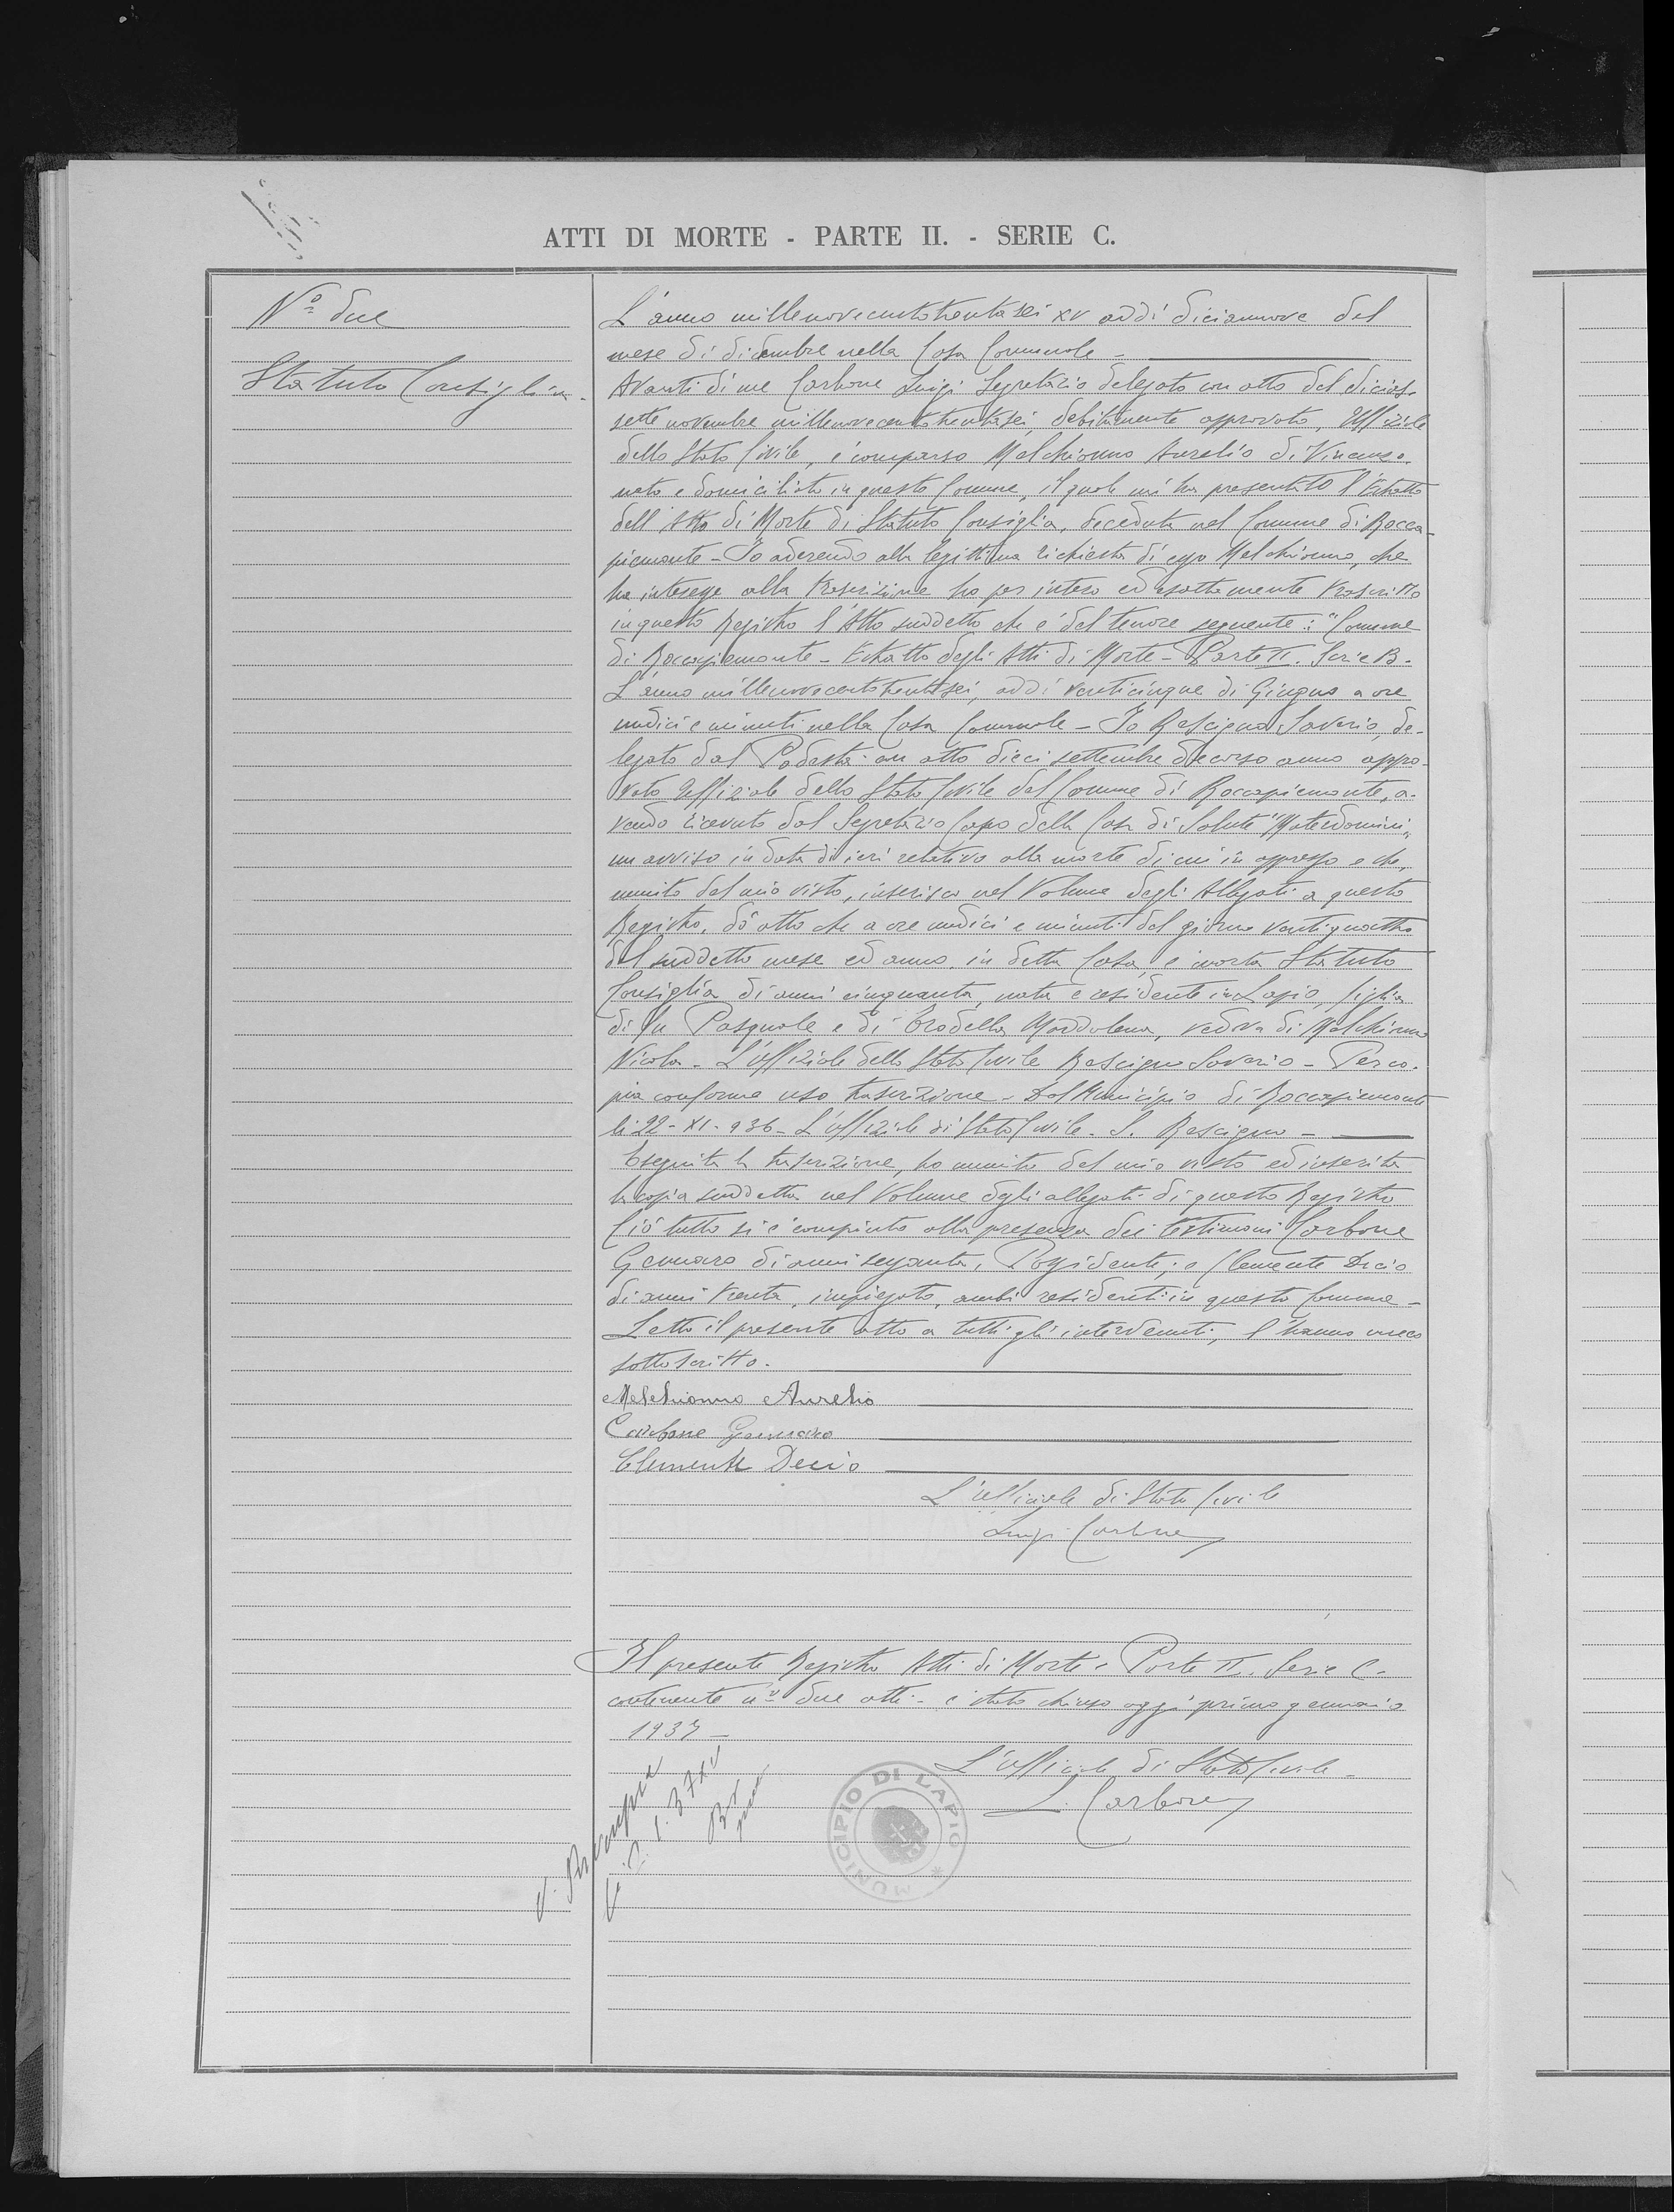 ATTI DI MORTE - PARTE II. - SERIE C.
Nº due
Statuto Consiglia.
L'anno millenovecentotrentasei XV addì diciannove del
mese di dicembre nella Casa Comunale -
Avanti di me Carbone Luigi Segretario delegato con atto del dicias-
sette novembre millenovecentotrentasei, debitamente approvato, Uffiziale
dello Stato Civile, è comparso Melchionno Aurelio di Vincenzo
nato e domiciliato in questo Comune, il quale mi ha presentato l'Estratto
dell'Atto di Morte di Statuto Consiglia, deceduta nel Comune di Rocca-
piemonte - Io aderendo alla legittima richiesta di esso Melchionno, che
ha interesse alla trascrizione ho per intero ed esattamente trascritto
in questo Registro l'Atto suddetto che è del tenore seguente: "Comune
di Roccapiemonte - Estratto degli Atti di Morte - Parte II. Serie B.
L'anno millenovecentotrentasei, addì venticinque di Giugno a ore
undici e minuti nella Casa Comunale - Io Rescigno Saverio, de-
legato dal Podestà con atto dieci settembre decorso anno appro-
vato Uffiziale dello Stato Civile del Comune di Roccapiemonte, a-
vendo ricevuto dal Segretario Capo della Casa di Salute "Materdomini"
un avviso in data di ieri relativo alla morte di cui in appresso e che,
munito del mio visto, inserisco nel Volume degli Allegati a questo
Registro, dò atto che a ore undici e minuti del giorno ventiquattro
del suddetto mese ed anno, in detta Casa, è morta Statuto
Consiglia di anni cinquanta, nata e residente in Lapio, figlia
di fu Pasquale e di Trodella Maddalena, vedova di Melchionno
Nicola - L'Uffiziale dello Stato Civile Rescigno Saverio - Per co-
pia conforme uso trascrizione - Dal Municipio di Roccapiemonte
li 22 - XI - 936 - L'Uffiziale di Stato Civile - S. Rescigno -
Eseguita la trascrizione, ho munita del mio visto ed inserita
la copia suddetta nel Volume degli allegati di questo Registro
Ciò tutto si è compiuto alla presenza dei testimoni Carbone
Gennaro di anni sessanta, Possidente; e Clemente Decio
di anni trenta, impiegato, ambi residenti in questo Comune -
Letto il presente atto a tutti gli intervenuti, l'hanno meco
sottoscritto.
Melchionno Aurelio
Carbone Gennaro
Clemente Decio
L'ufficiale di Stato Civile
Luigi Carbone
Il presente Registro Atti di Morte - Parte II. Serie C -
contenente nº due atti - è stato chiuso oggi primo gennaio
1937 -
L'ufficiale di Stato Civile -
L. Carbone
MUNICIPIO DI LAPIO